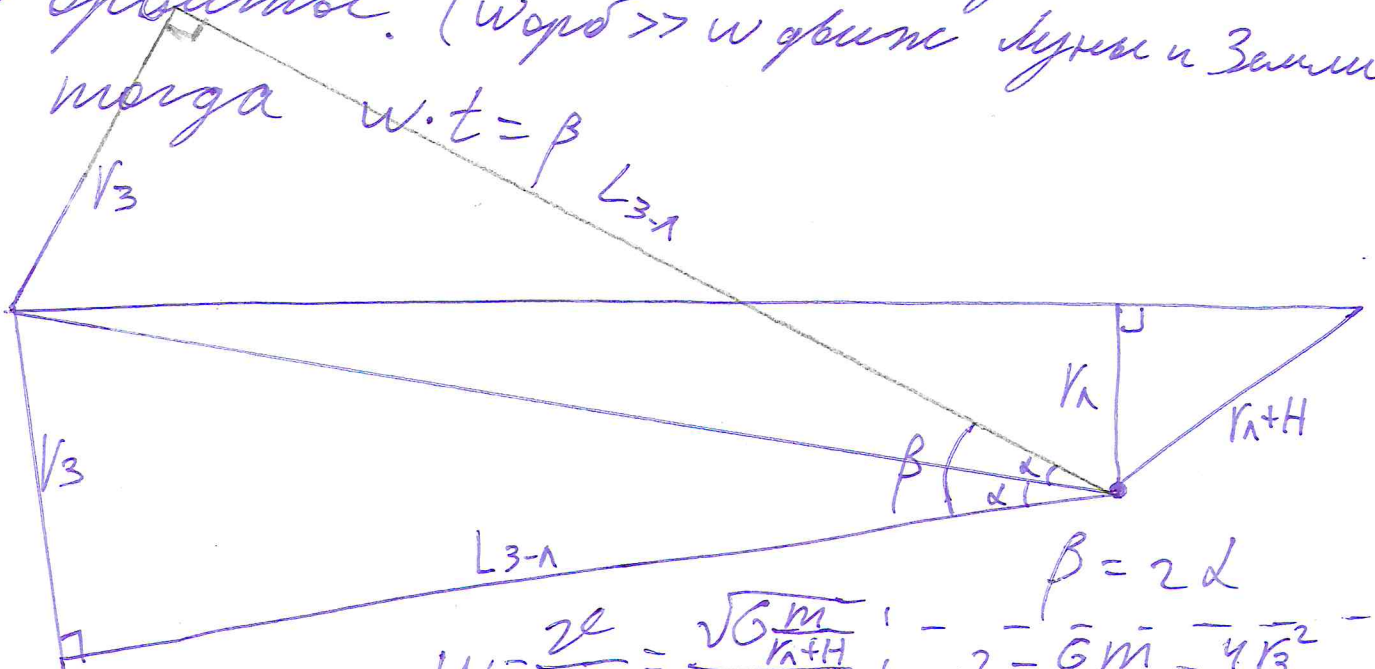 орбиты. (wорб >> w движ Луны и Земли
тогда w·t = β
r₃
L₃₋л
rл
rл+H
r₃
β
α
α
L₃₋л
β = 2α
w = = √(G m/(rл+H)) ; = Gm = 4r₃²